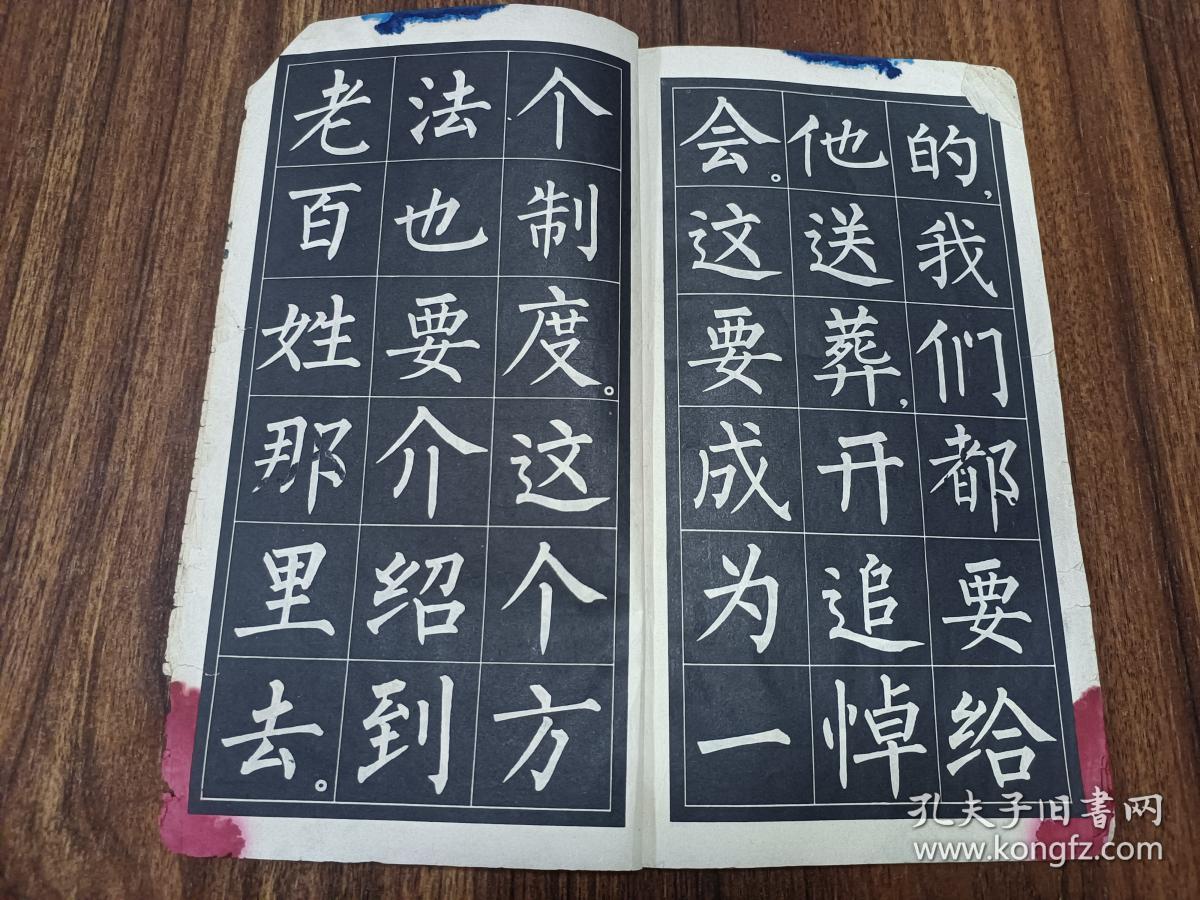 的，我们都要给
他送葬，开追悼
会。这要成为一
个制度。这个方
法也要介绍到
老百姓那里去。
孔夫子旧書网
www.kongfz.com